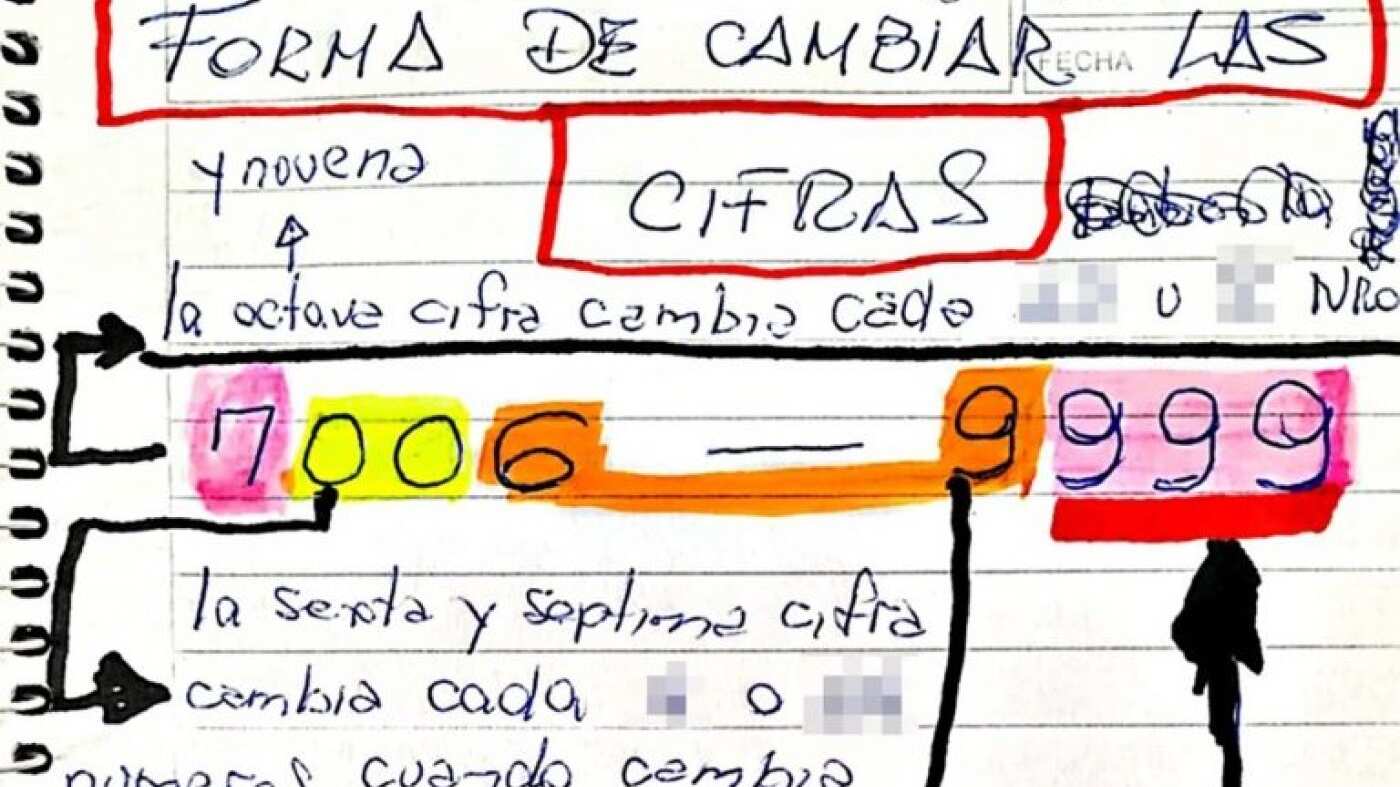 FORMA DE CAMBIAR LAS
FECHA
y novena
CIFRAS
la octava cifra cambia cada u Nro
7006 — 9999
la sexta y septima cifra
cambia cada o
numeros cuando cambia